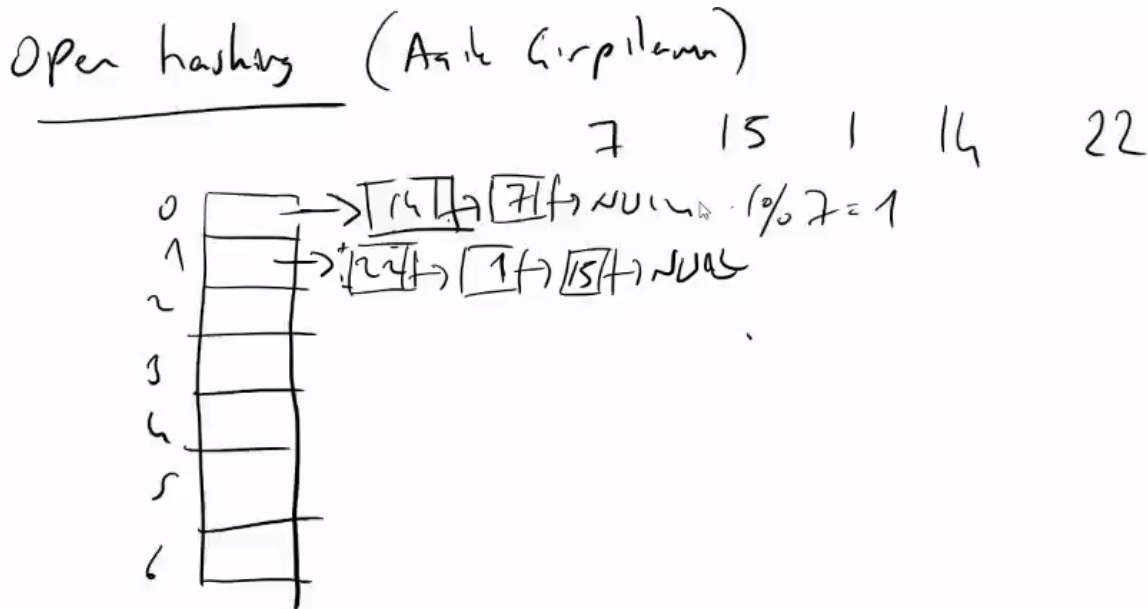 Open hashing (Açık Çırpılama)
7 15 1 14 22
0 14 7 NULL 1%7=1
1 22 1 15 NULL
2
3
4
5
6